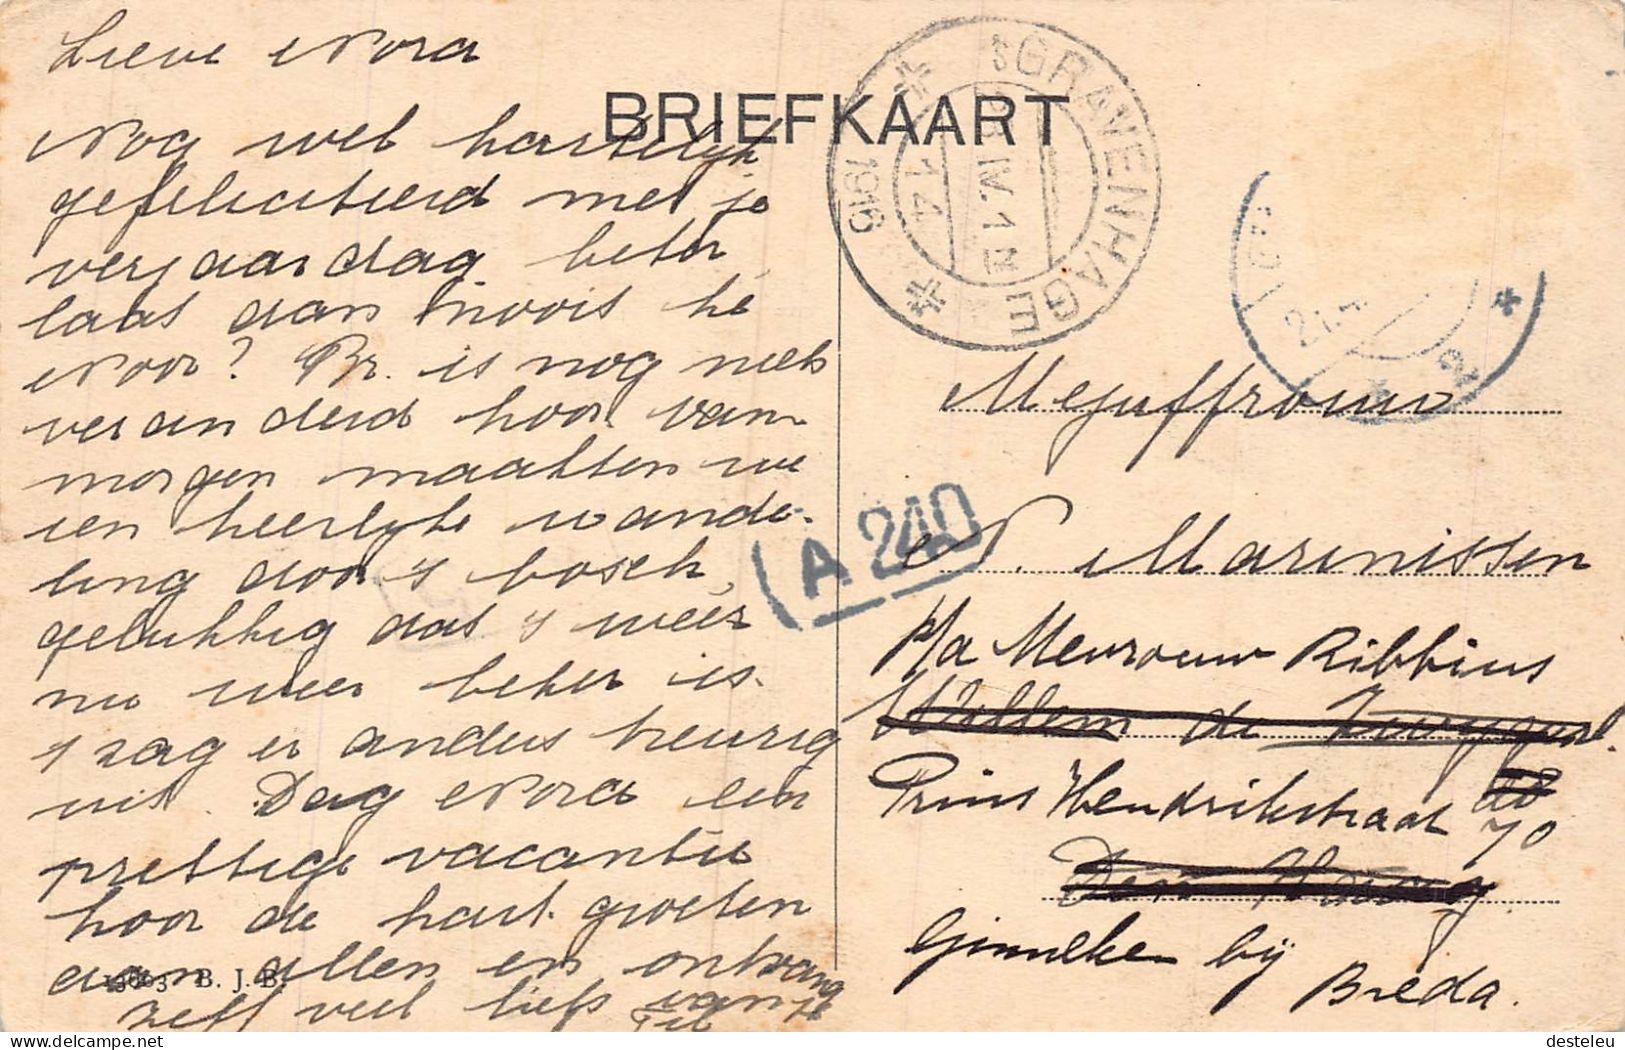 Lieve Nora
Nog wel hartelijk
gefeliciteerd met je
verjaardag beter
laat dan nooit hè
Noor? Br. is nog niets
veranderd hoor van-
morgen maakten we
een heerlijke wande-
ling door 't bosch,
gelukkig dat 't weer
nu weer beter is.
't zag er anders treurig
uit. Dag Nora een
prettige vacantie
hoor de hart. groeten
aan allen en ontvang
zelf veel liefs van je
BRIEFKAART
'S GRAVENHAGE
IV. 1
1916
A 240
Mejuffrouw
N. Marinissen
p/a Mevrouw Ribbius
Willem de
Prins Hendrikstraat
70
Den Haag
Ginneken bij
Breda.
B. J. B.
desteleu